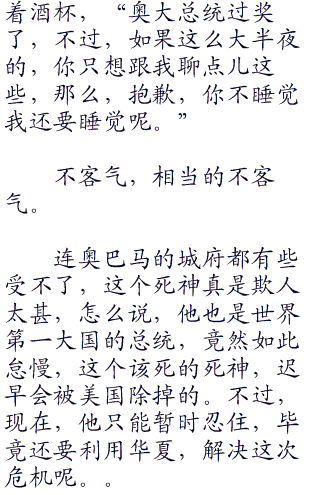 着酒杯，“奥大总统过奖
了，不过，如果这么大半夜
的，你只想跟我聊点儿这
些，那么，抱歉，你不睡觉
我还要睡觉呢。”
不客气，相当的不客
气。
连奥巴马的城府都有些
受不了，这个死神真是欺人
太甚，怎么说，他也是世界
第一大国的总统，竟然如此
怠慢，这个该死的死神，迟
早会被美国除掉的。不过，
现在，他只能暂时忍住，毕
竟还要利用华夏，解决这次
危机呢。。